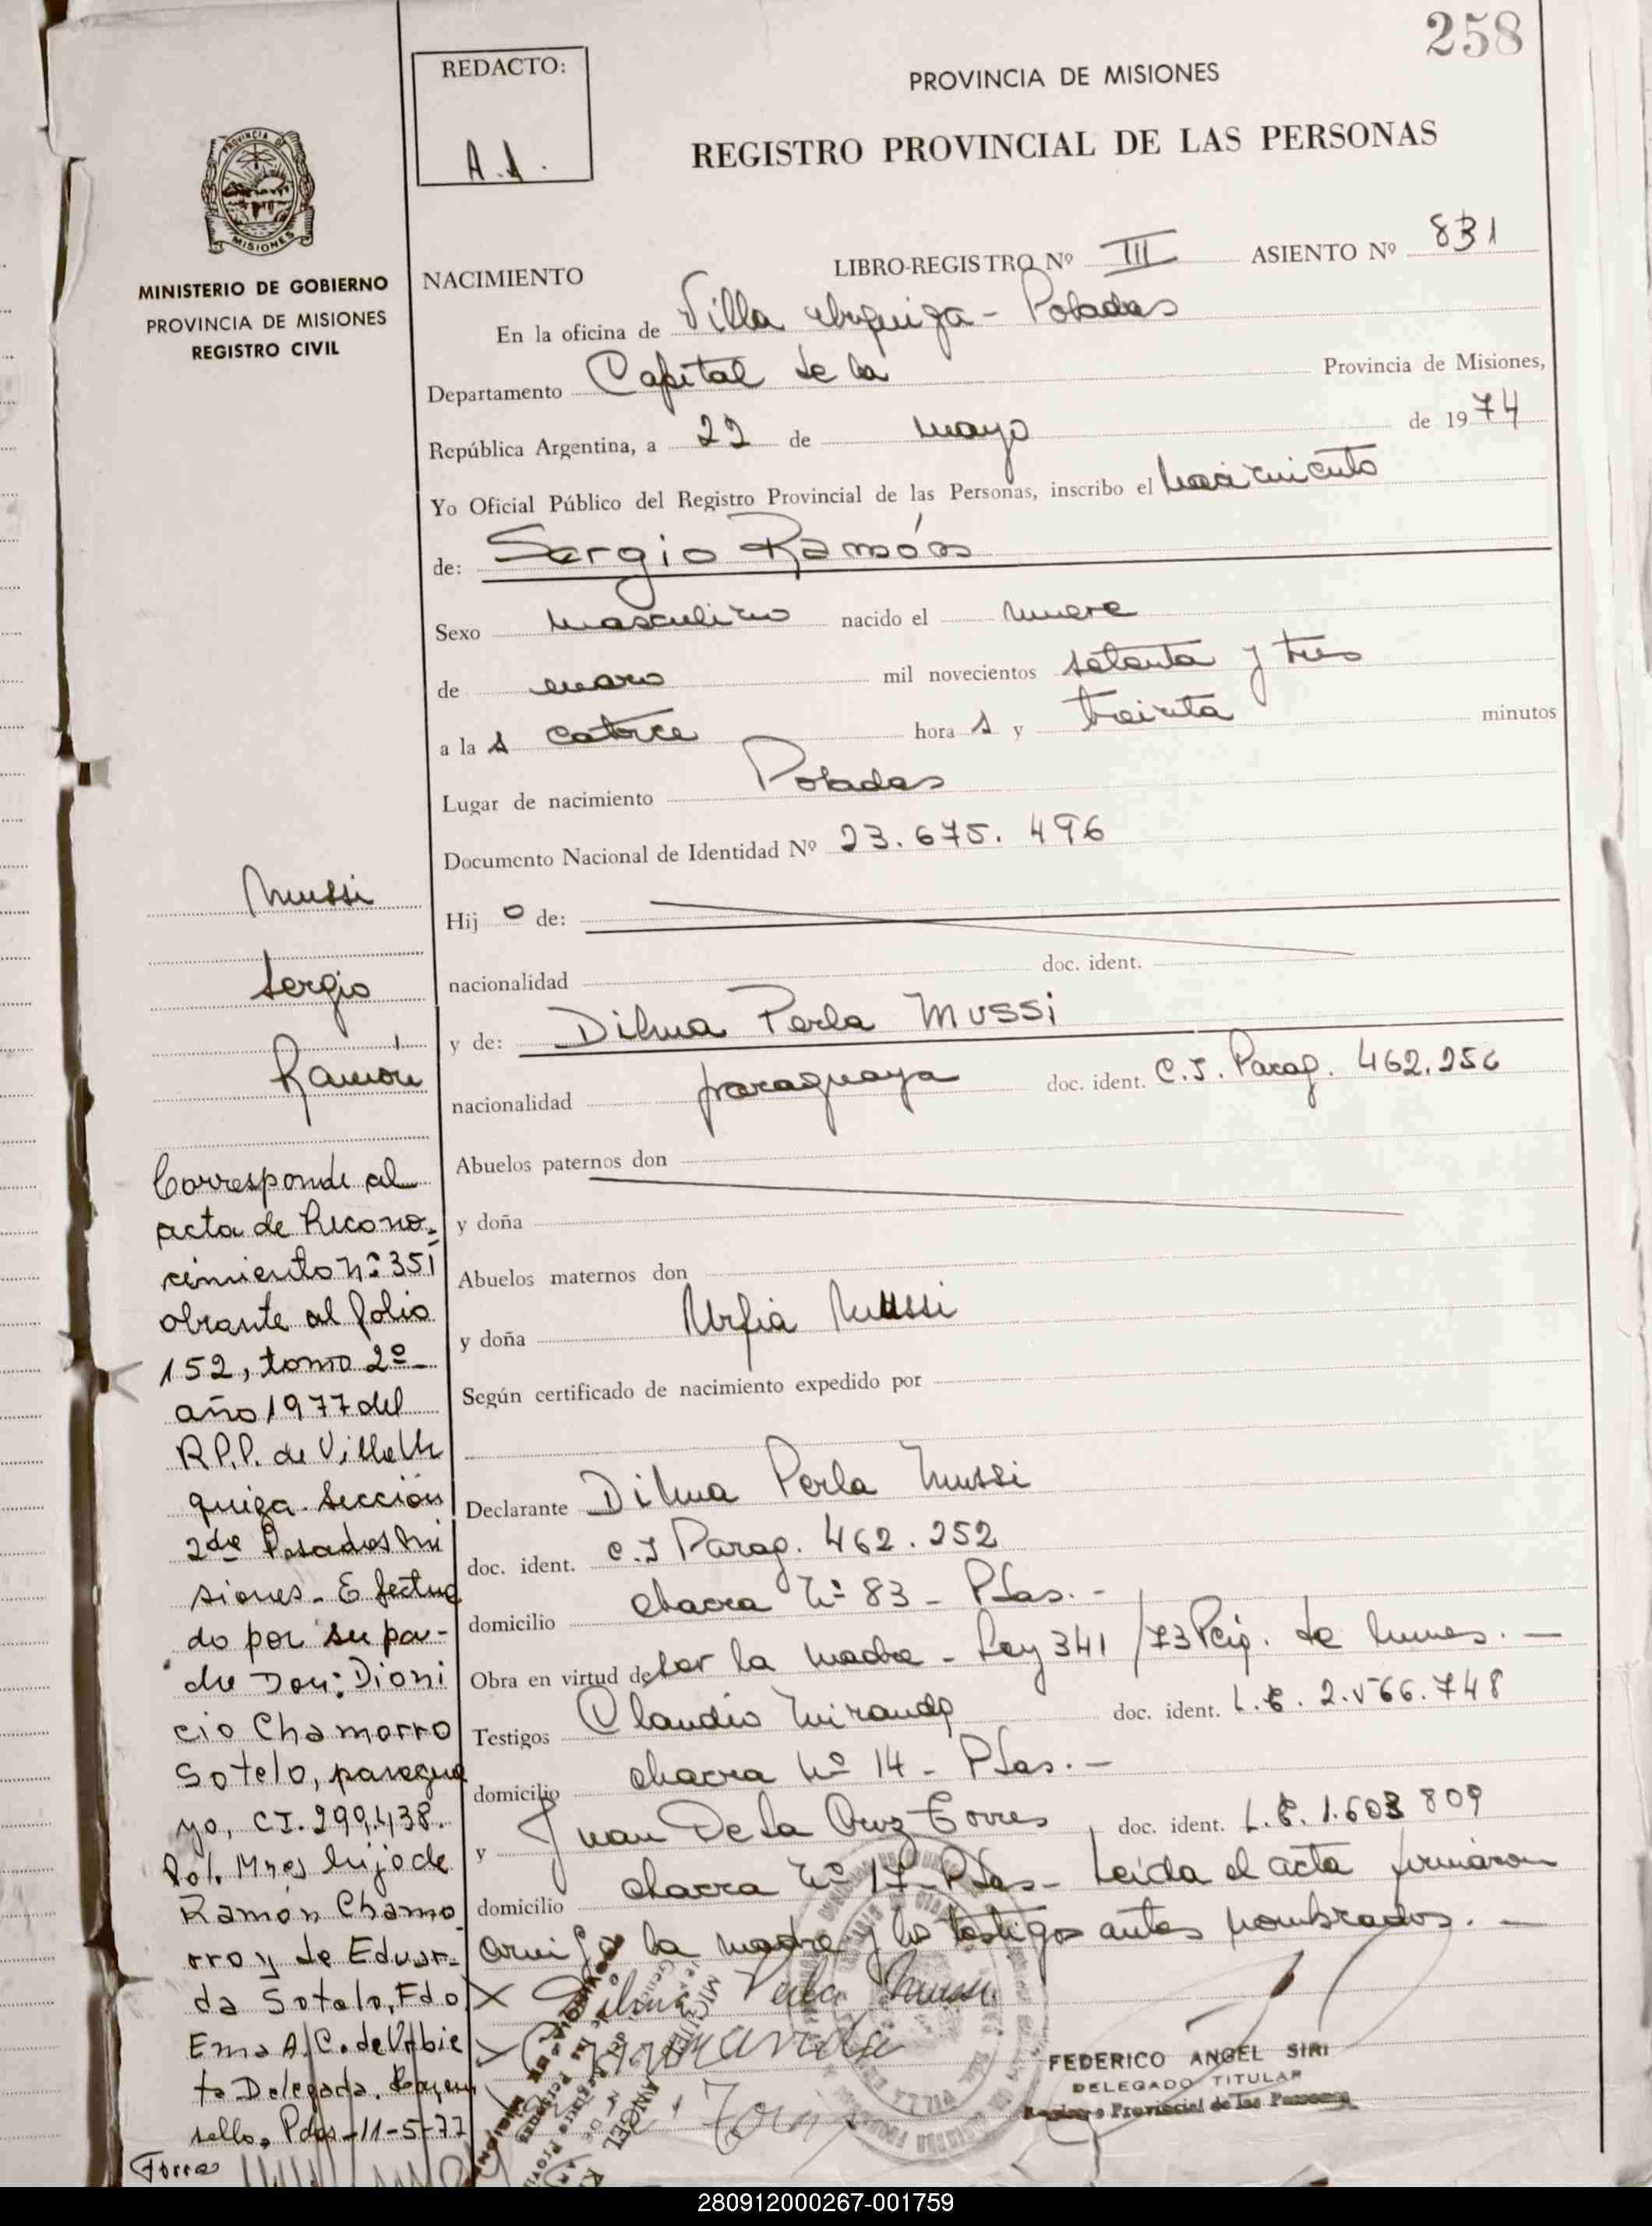 258
REDACTO:
A.A.
PROVINCIA DE MISIONES
REGISTRO PROVINCIAL DE LAS PERSONAS
PROVINCIA DE
MISIONES
MINISTERIO DE GOBIERNO
PROVINCIA DE MISIONES
REGISTRO CIVIL
LIBRO-REGISTRO Nº III ASIENTO Nº 831
NACIMIENTO
En la oficina de Villa Urquiza - Posadas
Departamento Capital de la Provincia de Misiones,
República Argentina, a 22 de mayo de 1974
Yo Oficial Público del Registro Provincial de las Personas, inscribo el nacimiento
de: Sergio Ramón
Sexo masculino nacido el nueve
de enero mil novecientos setenta y tres
a la s catorce hora s y treinta minutos
Lugar de nacimiento Posadas
Documento Nacional de Identidad Nº 23.675.496
Hij o de:
nacionalidad doc. ident.
y de: Dilma Perla Mussi
nacionalidad paraguaya doc. ident. C.I. Parag. 462.252
Abuelos paternos don
y doña
Abuelos maternos don
y doña Urfia Mussi
Según certificado de nacimiento expedido por
Declarante Dilma Perla Mussi
doc. ident. C.I Parag. 462.252
domicilio chacra Nº 83 - Pdas.-
Obra en virtud de ser la madre - Ley 341/73 de
Testigos Claudio Miranda doc. ident. L.E. 2.566.748
domicilio chacra Nº 14 - Pdas.-
y Juan De La Cruz Torres, doc. ident. L.E. 1.603 809
domicilio chacra Nº 17 - Pdas - Leída el acta firmaron
la madre y los testigos antes nombrados.-
X Dilma Perla Mussi
Miranda
FEDERICO ANGEL SIRI
DELEGADO TITULAR
Registro Provincial de las Personas
Mussi
Sergio
Ramón
Corresponde al
acta de Recono-
cimiento Nº 351
obrante al folio
152, tomo 2º
año 1977 del
R.P.P. de Villa Ur
quiza. Sección
2da Posadas Mi
siones - Efectua
do por su pa-
dre Don: Dioni
cio Chamorro
Sotelo, paragua
yo, CI. 299.438.
Pol. Mnes hijo de
Ramón Chamo
rro y de Eduar-
da Sotelo, Fdo
Ema A. C. de Urbie
ta Delegada. Hay un
sello. Pdas - 11-5-77
280912000267-001759